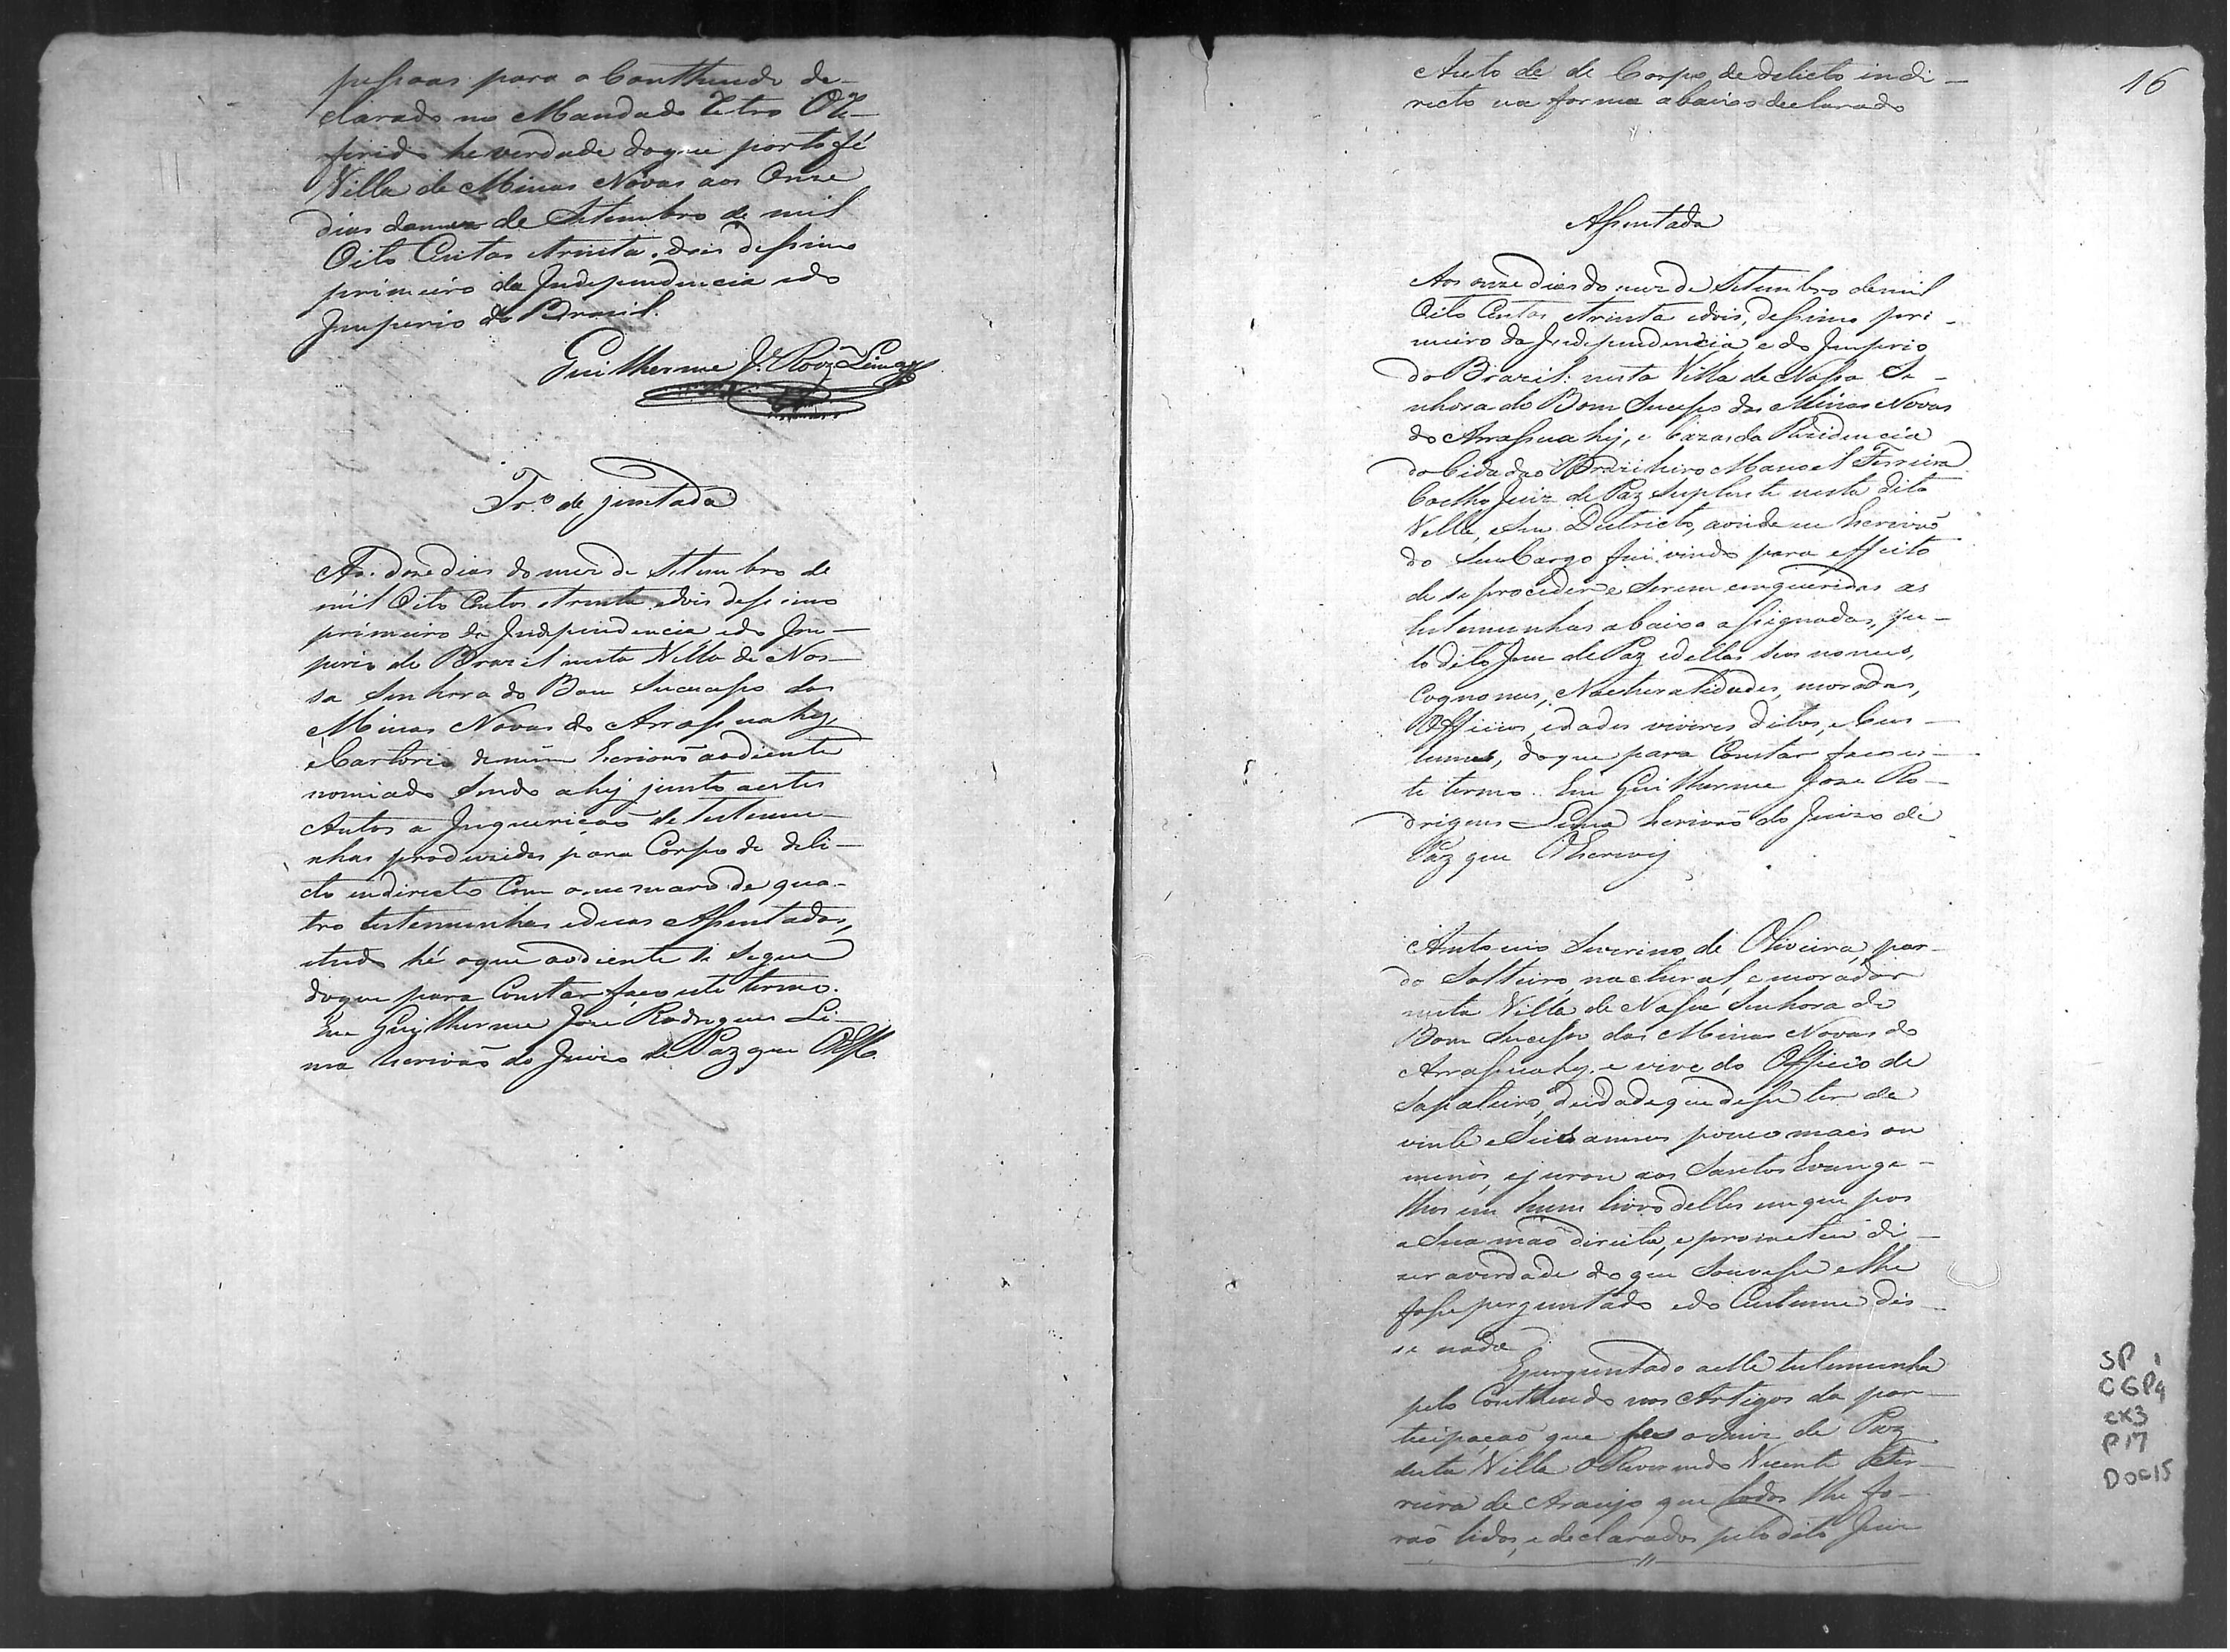 pessoas para o Contheudo de-
clarado no Mandado retro Re-
ferido he verdade do que porto fé
Villa de Minas Novas aos Onze
dias do mes de Setembro de mil
Oito Centos etrinta, dois dessimo
primeiro da Independencia edo
Imperio do Brasil.
Guilherme J.e Roiz Lima
Tr.o de juntada
Aos doze dias do mez de Setembro de
mil Oito Centos etrinta edois dessimo
primeiro da Independencia edo Im-
perio do Brazil nesta Villa de Nos-
sa Senhora do Bom Sucesso das
Minas Novas do Arrassuahy,
eCartorio demim Escrivaõ aodiente
nomiado sendo ahy junto aestes
Autos a Inquiricaõ de testemu-
nhas produzidas para Corpo de deli-
cto indirecto Com o numaro de qua-
tro testemunhas eduas Assentadas,
etudo hé oque aodiente se segue
doque para Constar faço este termo.
Eu Guilherme Jose Rodrigues Li-
ma Escrivaõ do Juizo de Paz que
16
Auto de de Corpo de delicto indi-
recto na forma abaixo declarado
Assentada
Aos onze dias do mez de Setembro demil
Oito Centos etrinta edois, dessimo pri-
meiro da Independencia, e do Imperio
do Brazil: nesta Villa de Nossa Se-
nhora do Bom Sucesso das Minas Novas
do Arrassuahy, e Cazas da Rezidencia
do Cidadaõ Brazileiro Manoel Ferreira
Coelho Juiz de Paz Suplente nesta dita
Villa, eseu Destricto, aonde eu Escrivaõ
do seu Cargo fui vindo para effeito
de se proceder e serem enqueridas as
testemunhas abaixo assignadas, pe-
lo dito Juiz de Paz edellas seos nomes,
Cognomes, Nacturalidades, moradas,
Officios, edades viveres, ditos, eCus-
tumes, doque para Constar faco es-
te termo. Eu Guilherme Jose Ro-
drigues Lima Escrivaõ do Juizo de
Paz que OEscrevy
Antonio Severino de Oliveira, par-
do Solteiro, nactural, e morador
nesta Villa de Nossa Senhora do
Bom Sucesso das Minas Novas do
Arrassuahy. e vive do Officio de
Sapateiro, deidade que disse ter de
vinte e Seis annos pouco mais ou
menos, ejurou aos Santos Evange-
lhos em hum livro delles em que pos
a Sua maõ direita, e prometeu di-
zer averdade do que Souvesse elhe
fosse perguntado edo Custume dis-
se nada
Eperguntado aelle testemunha
pelo Contheudo nos Artigos da par-
ticipacaõ que fes aoJuiz de Paz
desta Villa oReverendo Vicente Fer-
reira de Araujo que todos lhe fo-
raõ lidos, e declarados pelo dito Juiz
SP 1
CGP4
CX3
P17
Doc15